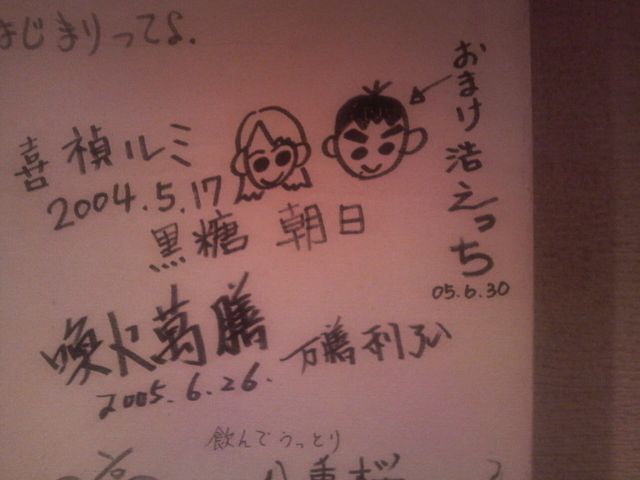 はじまりってよ.
おまけ 浩えっち
05.6.30
喜 禎ルミ
2004.5.17
黒糖 朝日
喚火萬膳
2005.6.26.
飲んでうっとり
八重桜